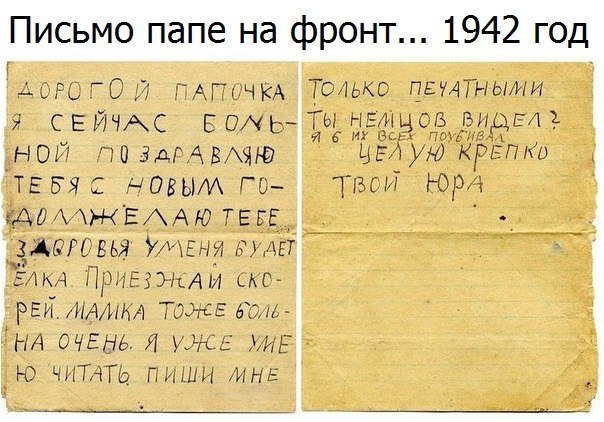 Письмо папе на фронт... 1942 год
ДОРОГОЙ ПАПОЧКА
Я СЕЙЧАС БОЛЬ-
НОЙ ПОЗДРАВЛЯЮ
ТЕБЯ С НОВЫМ ГО-
ДОМ ЖЕЛАЮ ТЕБЕ
ЗДОРОВЬЯ УМЕНЯ БУДЕТ
ЁЛКА. ПриЕЗЖАЙ СКО-
РЕЙ. МАМКА ТОЖЕ БОЛЬ-
НА ОЧЕНЬ. Я УЖЕ УМЕ
Ю ЧИТАТЬ ПИШИ МНЕ
ТОЛЬКО ПЕЧАТНЫМИ
ТЫ НЕМЦОВ ВИДЕЛ?
Я Б ИХ ВСЕХ ПОУБИВАЛ
ЦЕЛУЮ КРЕПКО
ТВОЙ ЮРА